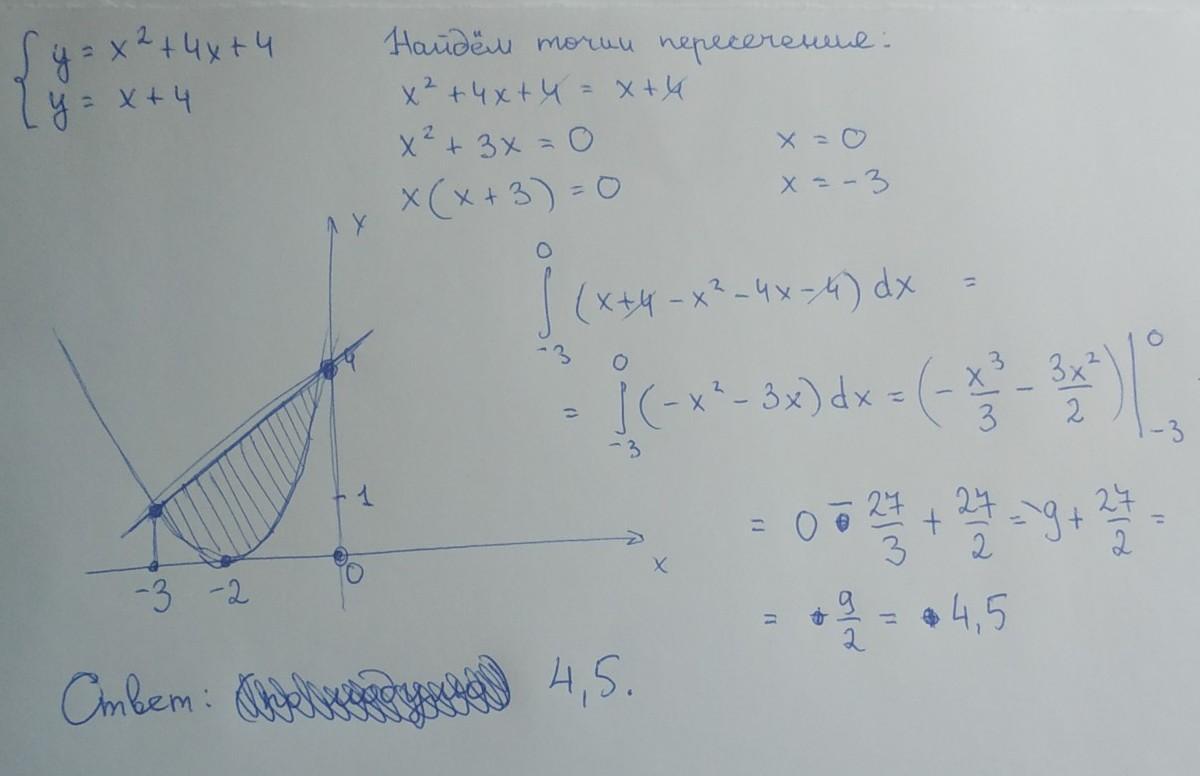 y = x² + 4x + 4
y = x + 4
Найдём точки пересечение:
x² + 4x + 4 = x + 4
x² + 3x = 0 x = 0
x(x + 3) = 0 x = -3
∫₋₃⁰ (x + 4 - x² - 4x - 4) dx =
= ∫₋₃⁰ (-x² - 3x) dx = (-x³/3 - 3x²/2) |₋₃⁰
= 0 - 27/3 + 27/2 = -9 + 27/2 =
= 9/2 = 4,5
Y
4
1
-3 -2 0 x
Ответ: 4,5.